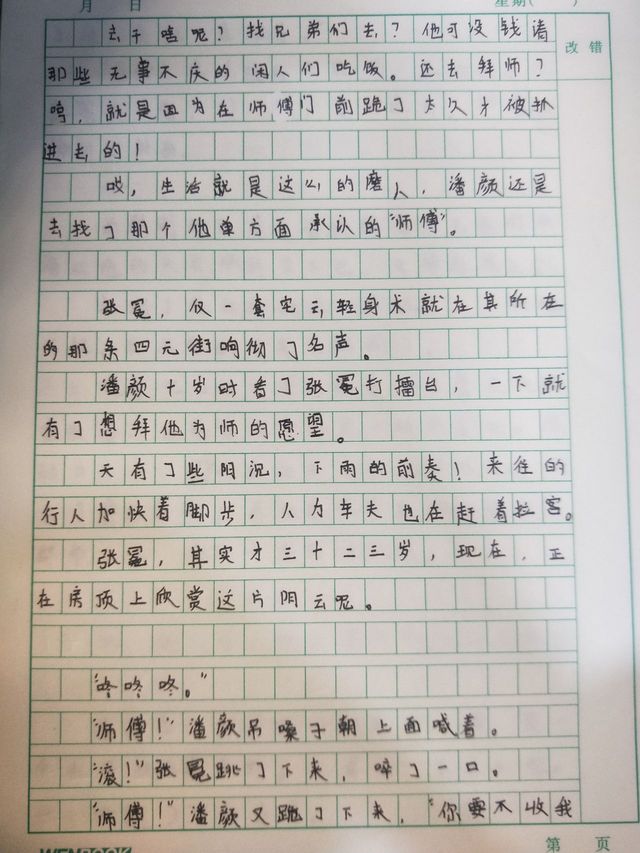 月 日 星期( )
改 错
去干啥呢？找兄弟们去？他可没钱请
那些无事不庆的闲人们吃饭。还去拜师？
哼，就是因为在师傅门前跪了太久才被抓
进去的！
哎，生活就是这么的磨人，潘颜还是
去找了那个他单方面承认的“师傅”。
张冕，仅一套宅云轻身术就在其所在
的那条四元街响彻了名声。
潘颜十岁时看了张冕打擂台，一下就
有了想拜他为师的愿望。
天有了些阴沉，下雨的前奏！来往的
行人加快着脚步，人力车夫也在赶着拉客。
张冕，其实才三十二三岁，现在，正
在房顶上欣赏这片阴云呢。
“咚咚咚。”
“师傅！”潘颜吊嗓子朝上面喊着。
“滚！”张冕跳了下来，啐了一口。
“师傅！”潘颜又跳了下来，“你要不收我
第 页